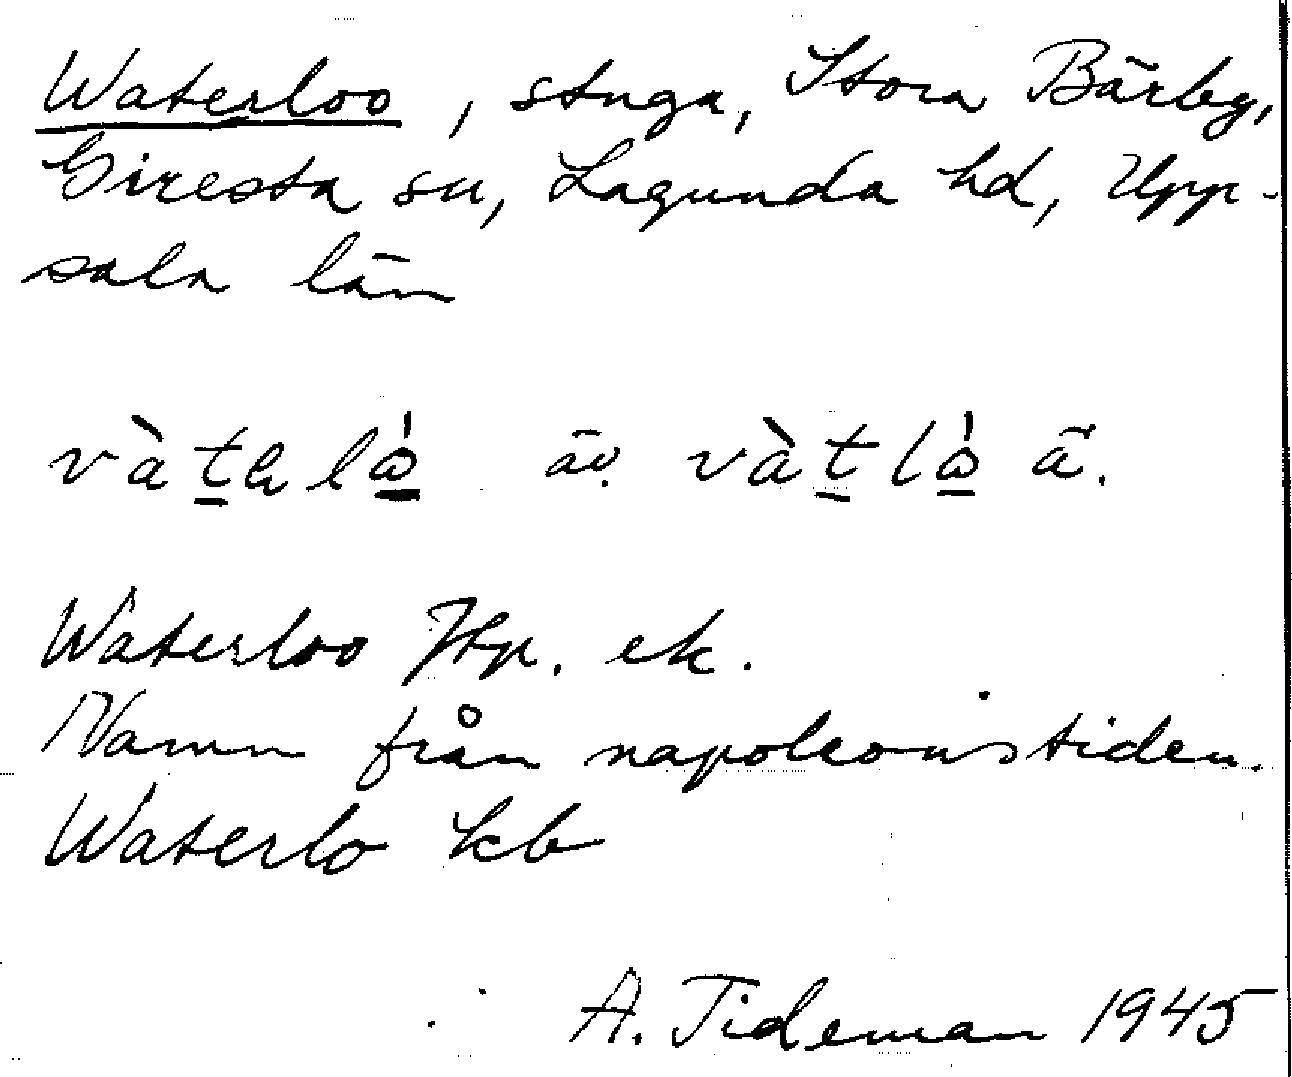 Waterloo, stuga, Stora Bärby,
Giresta sn, Lagunda hd, Upp-
sala län
Waterloo Jfp. ek.
Namn från napoleonstiden.
Waterlo kb
A. Tideman 1945